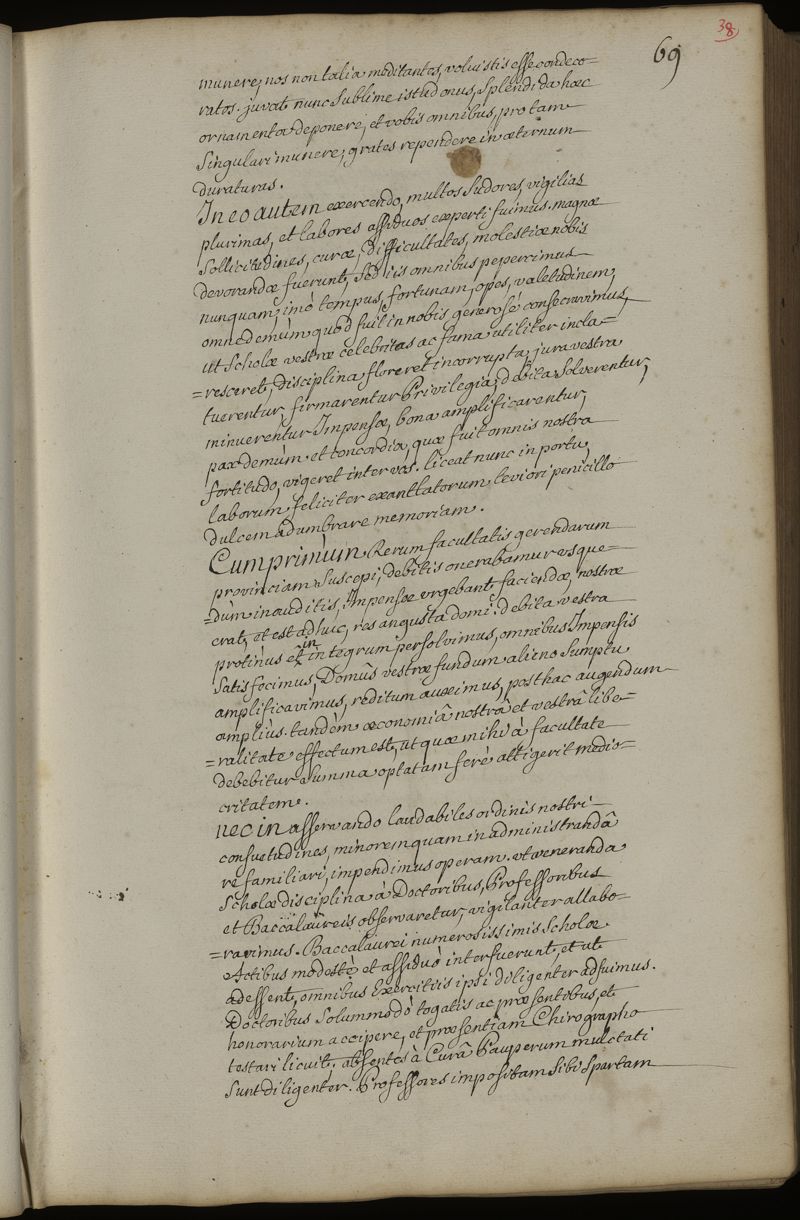 38
69
munere, nos non talia meditantes, voluistis esse condeco=
ratos. juvat nunc Sublime istud onus, Splendida hæc
ornamenta deponere, et vobis omnibus, pro tam
Singulari munere, grates rependere in æternum
duraturas.
In eo autem exercendo, multos Sudores, vigilias
plurimas, et labores assiduos experti fuimus. magnæ
Sollicitudines, curæ, difficultates, molestiæ nobis
devorandæ fuerunt, Sed iis omnibus pepercimus
nunquam; imò tempus, fortunam, opes, valetudinem,
omne demùm quod fuit in nobis generosè consecravimus,
ut Scholæ vestræ celebritas ac fama utiliter incla=
=resceret, disciplina floreret incorrupta, jura vestra
tuerentur, firmarentur Privilegia, debita Solverentur,
minuerentur Impensæ, bona amplificarentur,
pax demùm et concordia, quæ fuit omnis nostra
fortitudo, vigeret inter vos. liceat nunc in portu,
laborum feliciter exantlatorum leviori penicillo
dulcem adumbrare memoriam.
Cum primùm Rerum facultatis gerendarum
provinciam Suscepi, debitis onerabamur usque=
=dùm inauditis, Impensæ urgebant faciendæ, nostræ
erat, et est adhuc, res angusta domi. debita vestra
protinùs et in integrum persolvimus, omnibus Impensis
Satisfecimus, Domûs vestræ fundum alieno Sumptu
amplificavimus, reditum auximus, posthac augendum
ampliùs. tandèm œconomiâ nostrâ et vestrâ libe=
=ralitate effectum est, ut quæ mihi à facultate
debebitur Summa optatam ferè attigerit medio=
critatem.
nec in asservando laudabiles ordinis nostri
consuetudines, minorem quam in administrandâ
re familiari, impendimus operam. ut veneranda
Scholæ disciplina à Doctoribus, Professoribus
et Baccalaureis observaretur, vigilanter allabo=
=ravimus. Baccalaurei numerosissimis Scholæ
Actibus modestè et assiduò interfuerunt, et ut
adessent, omnibus Exercitiis ipsi diligenter adfuimus.
Doctoribus Solummodò togatis ac præsentibus, et
honorarium accipere, et præsentiam Chirographo
testari licuit; absentes à Curâ Pauperum mulctati
Sunt diligenter. Professores impositam Sibi Spartam